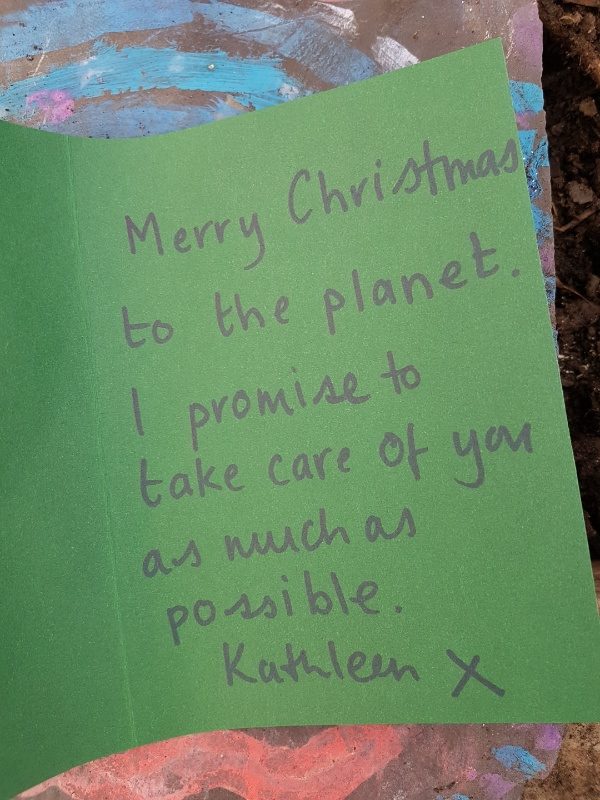 Merry Christmas
to the planet.
I promise to
take care of you
as much as
possible.
Kathleen X